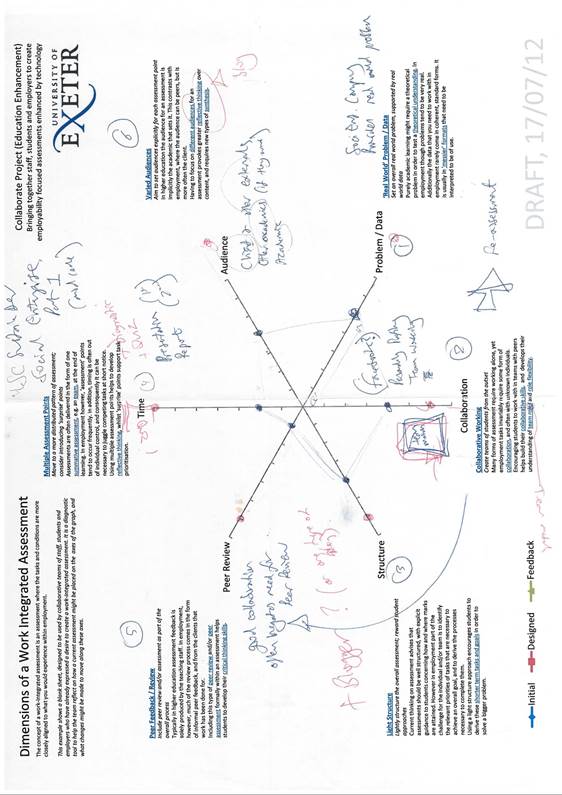 Dimensions of a Work Integrated Assessment
The concept of a work-integrated assessment is an assessment where the tasks and conditions are more
closely aligned to what you would experience within employment.
This example shows a blank sheet, designed to be used by collaborative teams of staff, students and
employers who have already expressed a desire to create a work-integrated assessment. It is a diagnostic
tool to help the team reflect on how a current assessment might be placed on the axes of the graph, and
what changes might be made to move along these axes.
Collaborate Project (Education Enhancement)
Bringing together staff, students and employers to create
employability focused assessments enhanced by technology
UNIVERSITY OF
EXETER
Social Enterprise,
Part 1
Peer Feedback / Review
Include peer review and/or assessment as part of the
overall process
Typically in higher education assessment feedback is
solely produced by the teaching staff. In employment,
however, much of the review process comes in the form
of informal peer feedback, and from the clients that
work has been done for.
Including this type of peer review and/or peer
assessment formally within an assessment helps
students to develop their critical thinking skills.
5
Multiple Assessment Points
Move to a more distributed pattern of assessment;
consider introducing 'surprise' points
Assessments are often delivered in the form of one
summative assessment, e.g. an exam, at the end of
learning. In employment, however, 'assessment' points
tend to occur frequently. In addition, timing is often out
of individual control, and consequently it can be
necessary to juggle competing tasks at short notice.
Using multiple assessment points helps to develop
reflective thinking, whilst 'surprise' points support task
prioritisation.
4
Varied Audiences
Aim to set audiences explicitly for each assessment point
In higher education the audience for an assessment is
implicitly the academic that sets it. This contrasts with
employment, where the audience can be peers, but is
more often the client.
Having to focus on different audiences for an
assessment provokes greater reflective thinking over
content, and requires new types of synthesis.
6
Blog
Diagnostic
+ Quiz
Presentation
Reports
Peer Review
Time
Audience
good collaboration
often negates need for
Peer Review
Client & other externals
Academic
Structure
Collaboration
Problem / Data
3
2
1
+ Bigger ?
Light Structure
Lightly structure the overall assessment; reward student
approaches
Current thinking on assessment advises that
assessments should be well structured, with explicit
guidance to students concerning how and where marks
are attained. However in employment part of the
challenge for the individual and/or team is to identify
the relevant priorities of tasks that are necessary to
achieve an overall goal, and to derive the processes
necessary to complete them.
Using a light structure approach encourages students to
derive these shorter term tasks and goals in order to
solve a bigger problem.
Collaborative Working
Create teams of students from the outset
Many forms of assessment require working alone, yet
employment tasks invariably require some form of
collaboration, and often with unknown individuals.
Encouraging students to work in teams with peers
helps build their collaborative skills, and develops their
understanding of team roles and role flexibility.
'Real World' Problem / Data
Set an overall real world problem, supported by real
world data
Purely academic learning might require a theoretical
problem in order to test a theoretical understanding. In
employment though problems tend to be very real.
Additionally the data that you need to work with in
employment rarely come in coherent, standard forms. It
is usually in 'messier' formats that need to be
interpreted to be of use.
Re-assessment
Initial
Designed
Feedback
DRAFT, 17/07/12